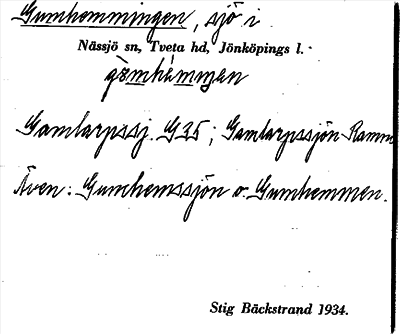 Gumhemmingen, sjö i
Nässjö sn, Tveta hd, Jönköpings l.
gömhèmmen
Gamlarpssj. G35; Gamlarpssjön Ramm
Även: Gumhemssjön o. Gumhemmen.
Stig Bäckstrand 1934.